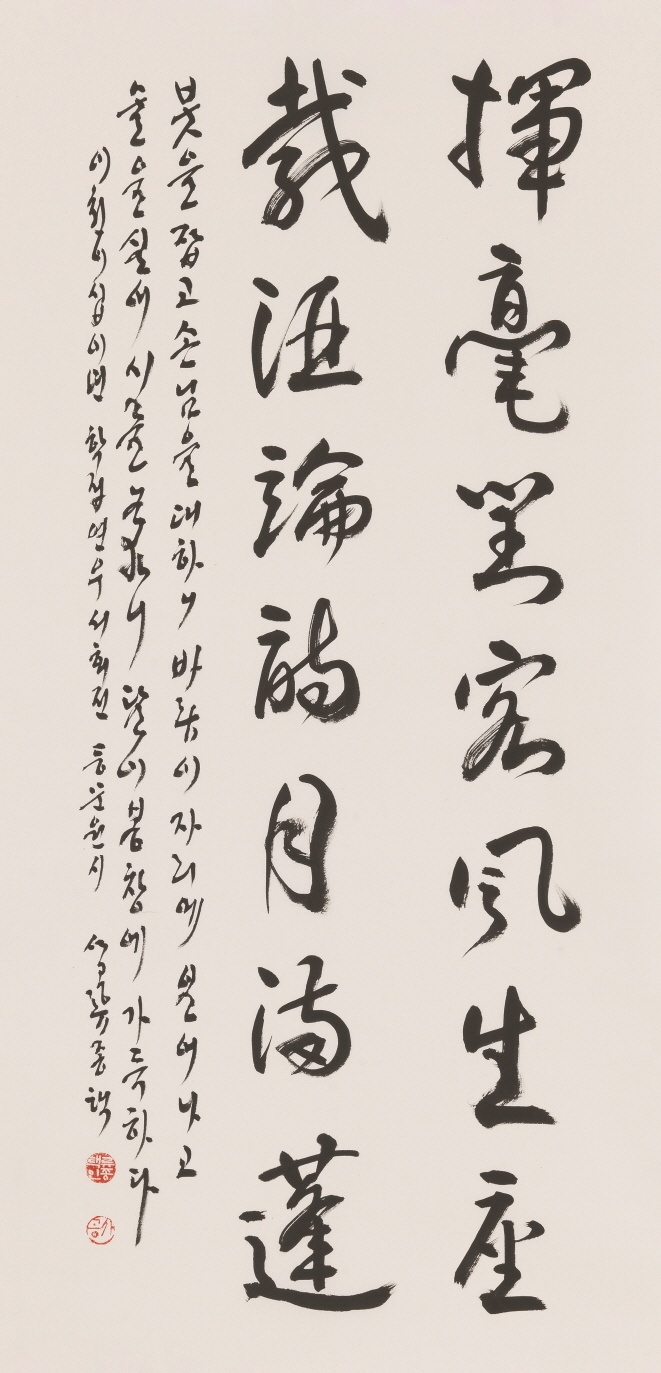 揮毫對客風生座
載酒論詩月滿蓬
붓을 잡고 손님을 대하니 바람이 자리에 나고
술을 실어 시를 논하니 달이 봉창에 가득하다
이천이십이년 학정연우서회전